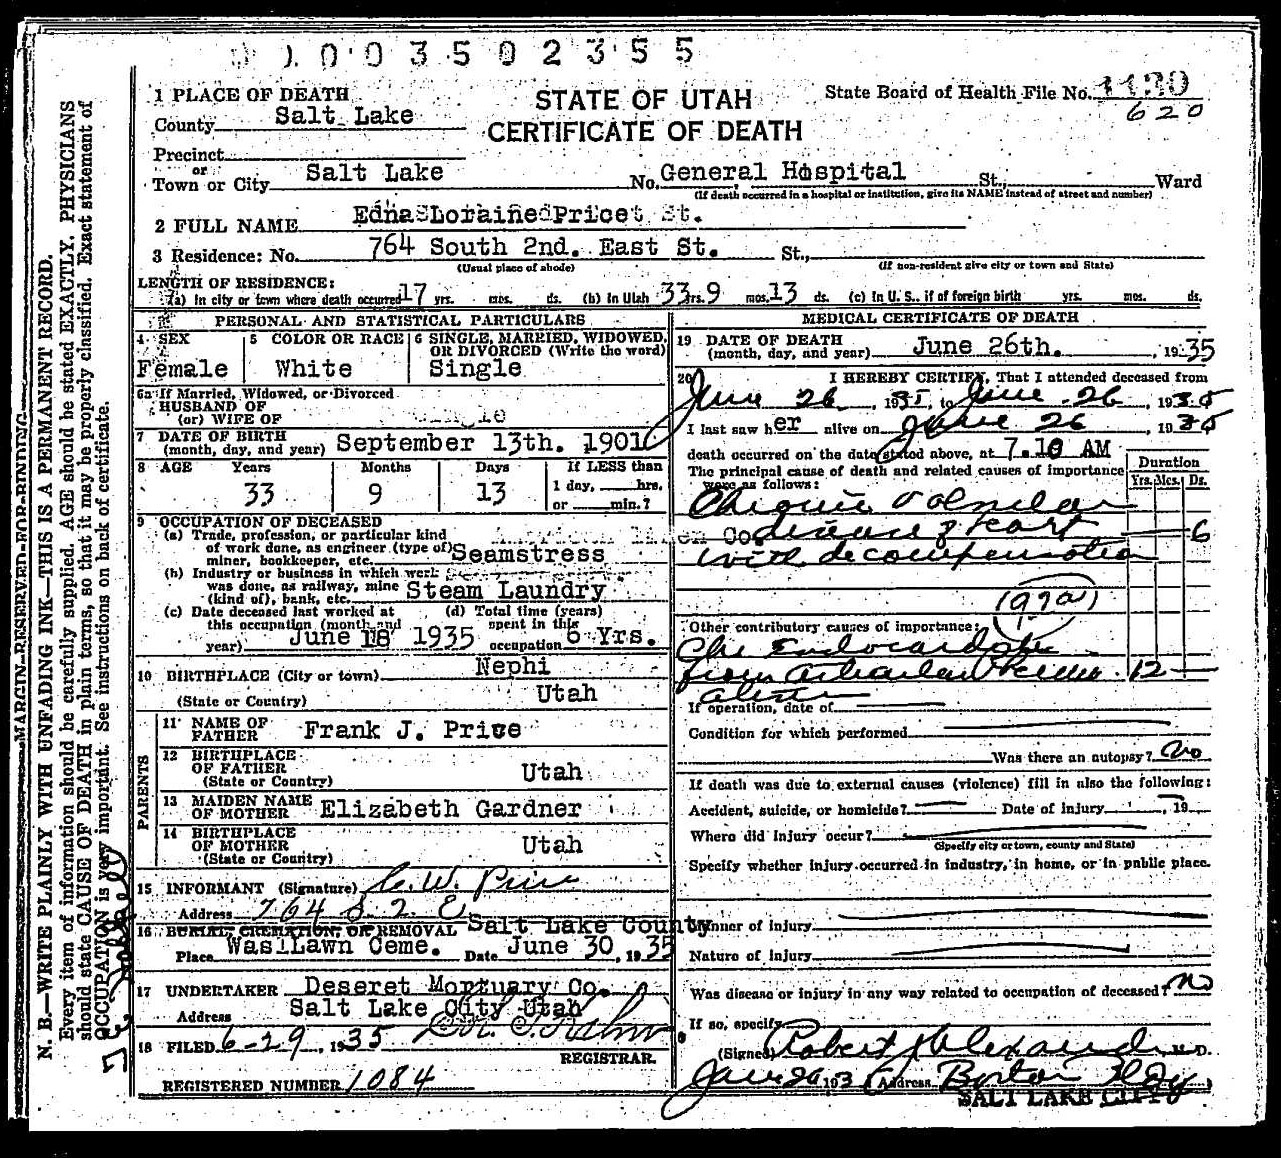 0 0 3 5 0 2 3 5 5
1 PLACE OF DEATH
STATE OF UTAH
CERTIFICATE OF DEATH
State Board of Health File No. 1130
620
County Salt Lake
Precinct
or
Town or City Salt Lake No. General Hospital St., Ward
(If death occurred in a hospital or institution, give its NAME instead of street and number)
2 FULL NAME Edna Loraine Price
3 Residence: No. 764 South 2nd. East St. St.,
(Usual place of abode) (If non-resident give city or town and State)
LENGTH OF RESIDENCE:
(a) In city or town where death occurred 17 yrs. mos. ds. (b) In Utah 33 yrs. 9 mos. 13 ds. (c) In U. S., if of foreign birth yrs. mos. ds.
PERSONAL AND STATISTICAL PARTICULARS
4 SEX
Female
5 COLOR OR RACE
White
6 SINGLE, MARRIED, WIDOWED, OR DIVORCED (Write the word)
Single
6a If Married, Widowed, or Divorced
HUSBAND OF
(or) WIFE OF
7 DATE OF BIRTH
(month, day, and year) September 13th. 1901
8 AGE Years Months Days If LESS than
33 9 13 1 day, hrs.
or min.?
9 OCCUPATION OF DECEASED
(a) Trade, profession, or particular kind
of work done, as engineer (type of)
miner, bookkeeper, etc. Seamstress
(b) Industry or business in which work
was done, as railway, mine
(kind of), bank, etc. Steam Laundry
(c) Date deceased last worked at
this occupation (month and
year) June 18 1935
(d) Total time (years)
spent in this
occupation 6 Yrs.
10 BIRTHPLACE (City or town) Nephi
(State or Country) Utah
PARENTS
11 NAME OF
FATHER Frank J. Price
12 BIRTHPLACE
OF FATHER
(State or Country) Utah
13 MAIDEN NAME
OF MOTHER Elizabeth Gardner
14 BIRTHPLACE
OF MOTHER
(State or Country) Utah
15 INFORMANT (Signature) C. W. Price
Address 764 S. 2 E
16 BURIAL, CREMATION, OR REMOVAL Salt Lake County
Place Was. Lawn Ceme. Date June 30, 1935
17 UNDERTAKER Deseret Mortuary Co.
Address Salt Lake City Utah
18 FILED 6-29, 1935
REGISTRAR.
REGISTERED NUMBER 1084
MEDICAL CERTIFICATE OF DEATH
19 DATE OF DEATH
(month, day, and year) June 26th. , 1935
20 I HEREBY CERTIFY, That I attended deceased from
June 26, 1935, to June 26, 1935
I last saw her alive on June 26, 1935
death occurred on the date stated above, at 7.10 AM
The principal cause of death and related causes of importance
were as follows:
Duration
Yrs. Mos. Ds.
Chronic Valvular
disease of Heart 6
with decompensation
(92a)
Other contributory causes of importance:
Chr Endocarditis
from 12
If operation, date of
Condition for which performed
Was there an autopsy? No
If death was due to external causes (violence) fill in also the following:
Accident, suicide, or homicide? Date of injury 19
Where did injury occur?
(Specify city or town, county and State)
Specify whether injury occurred in industry, in home, or in public place.
Manner of injury
Nature of injury
Was disease or injury in any way related to occupation of deceased? No
If so, specify
(Signed) Robert Alexander M. D.
1935 (Address Boston Bldg
SALT LAKE CITY
MARGIN RESERVED FOR BINDING
N. B.—WRITE PLAINLY WITH UNFADING INK—THIS IS A PERMANENT RECORD.
Every item of information should be carefully supplied. AGE should be stated EXACTLY. PHYSICIANS
should state CAUSE OF DEATH in plain terms, so that it may be properly classified. Exact statement of
OCCUPATION is very important. See instructions on back of certificate.